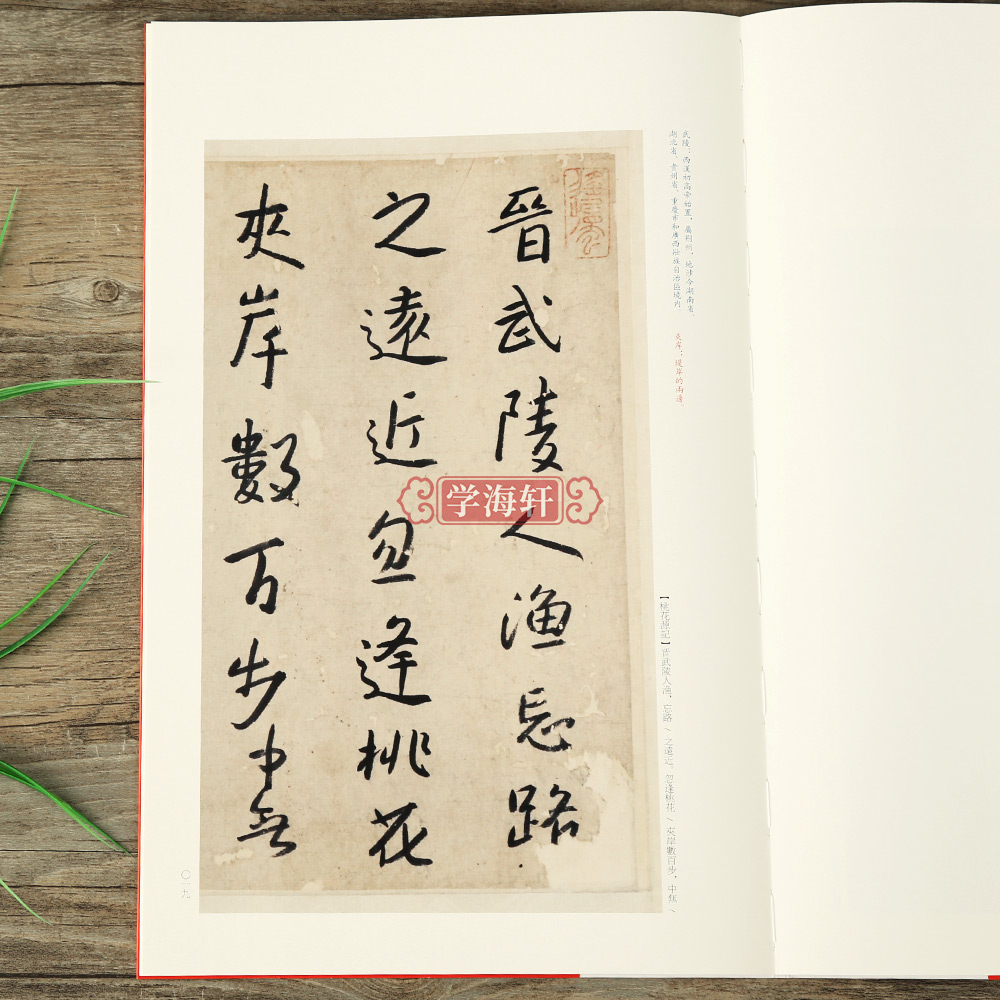 武陵：西漢初高帝始置，屬荆州，地涉今湖南省、
湖北省、貴州省、重慶市和廣西壯族自治區境内。
夾岸：堤岸的兩邊。
【桃花源記】晋武陵人漁，忘路／之遠近。忽逢桃花／夾岸數百步，中無／
晉武陵人漁忘路
之遠近忽逢桃花
夾岸數百步中無
学海轩
〇一九